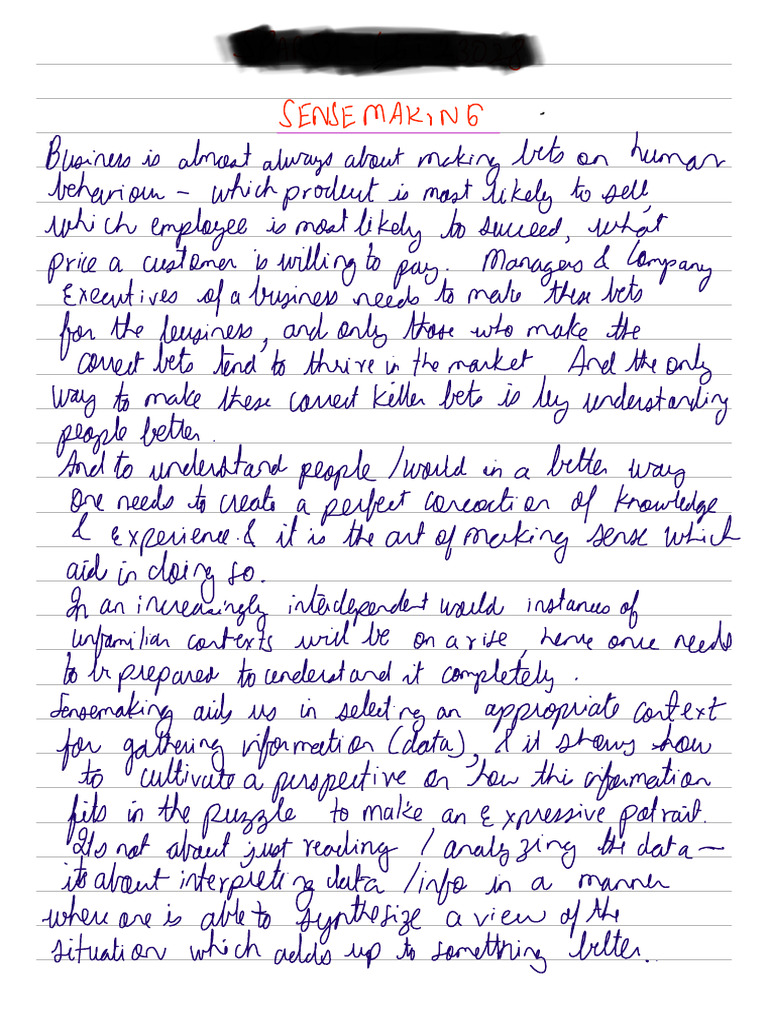 SENSEMAKING
Business is almost always about making bets on human
behaviour - which product is most likely to sell,
which employee is most likely to succeed, what
price a customer is willing to pay. Managers & Company
Executives of a business needs to make these bets
for the business, and only those who make the
correct bets tend to thrive in the market And the only
way to make these correct killer bets is by understanding
people better.
And to understand people / world in a better way
one needs to create a perfect concoction of knowledge
& experience. & it is the art of making sense which
aid in doing so.
In an increasingly interdependent world instances of
unfamiliar contexts will be on a rise, hence once needs
to be prepared to understand it completely.
Sensemaking aids us in selecting an appropriate context
for gathering information (data), & it shows how
to cultivate a perspective on how this information
fits in the puzzle to make an expressive potrait.
Its not about just reading / analyzing the data -
its about interpreting data / info in a manner
where one is able to synthesize a view of the
situation which adds up to something better..